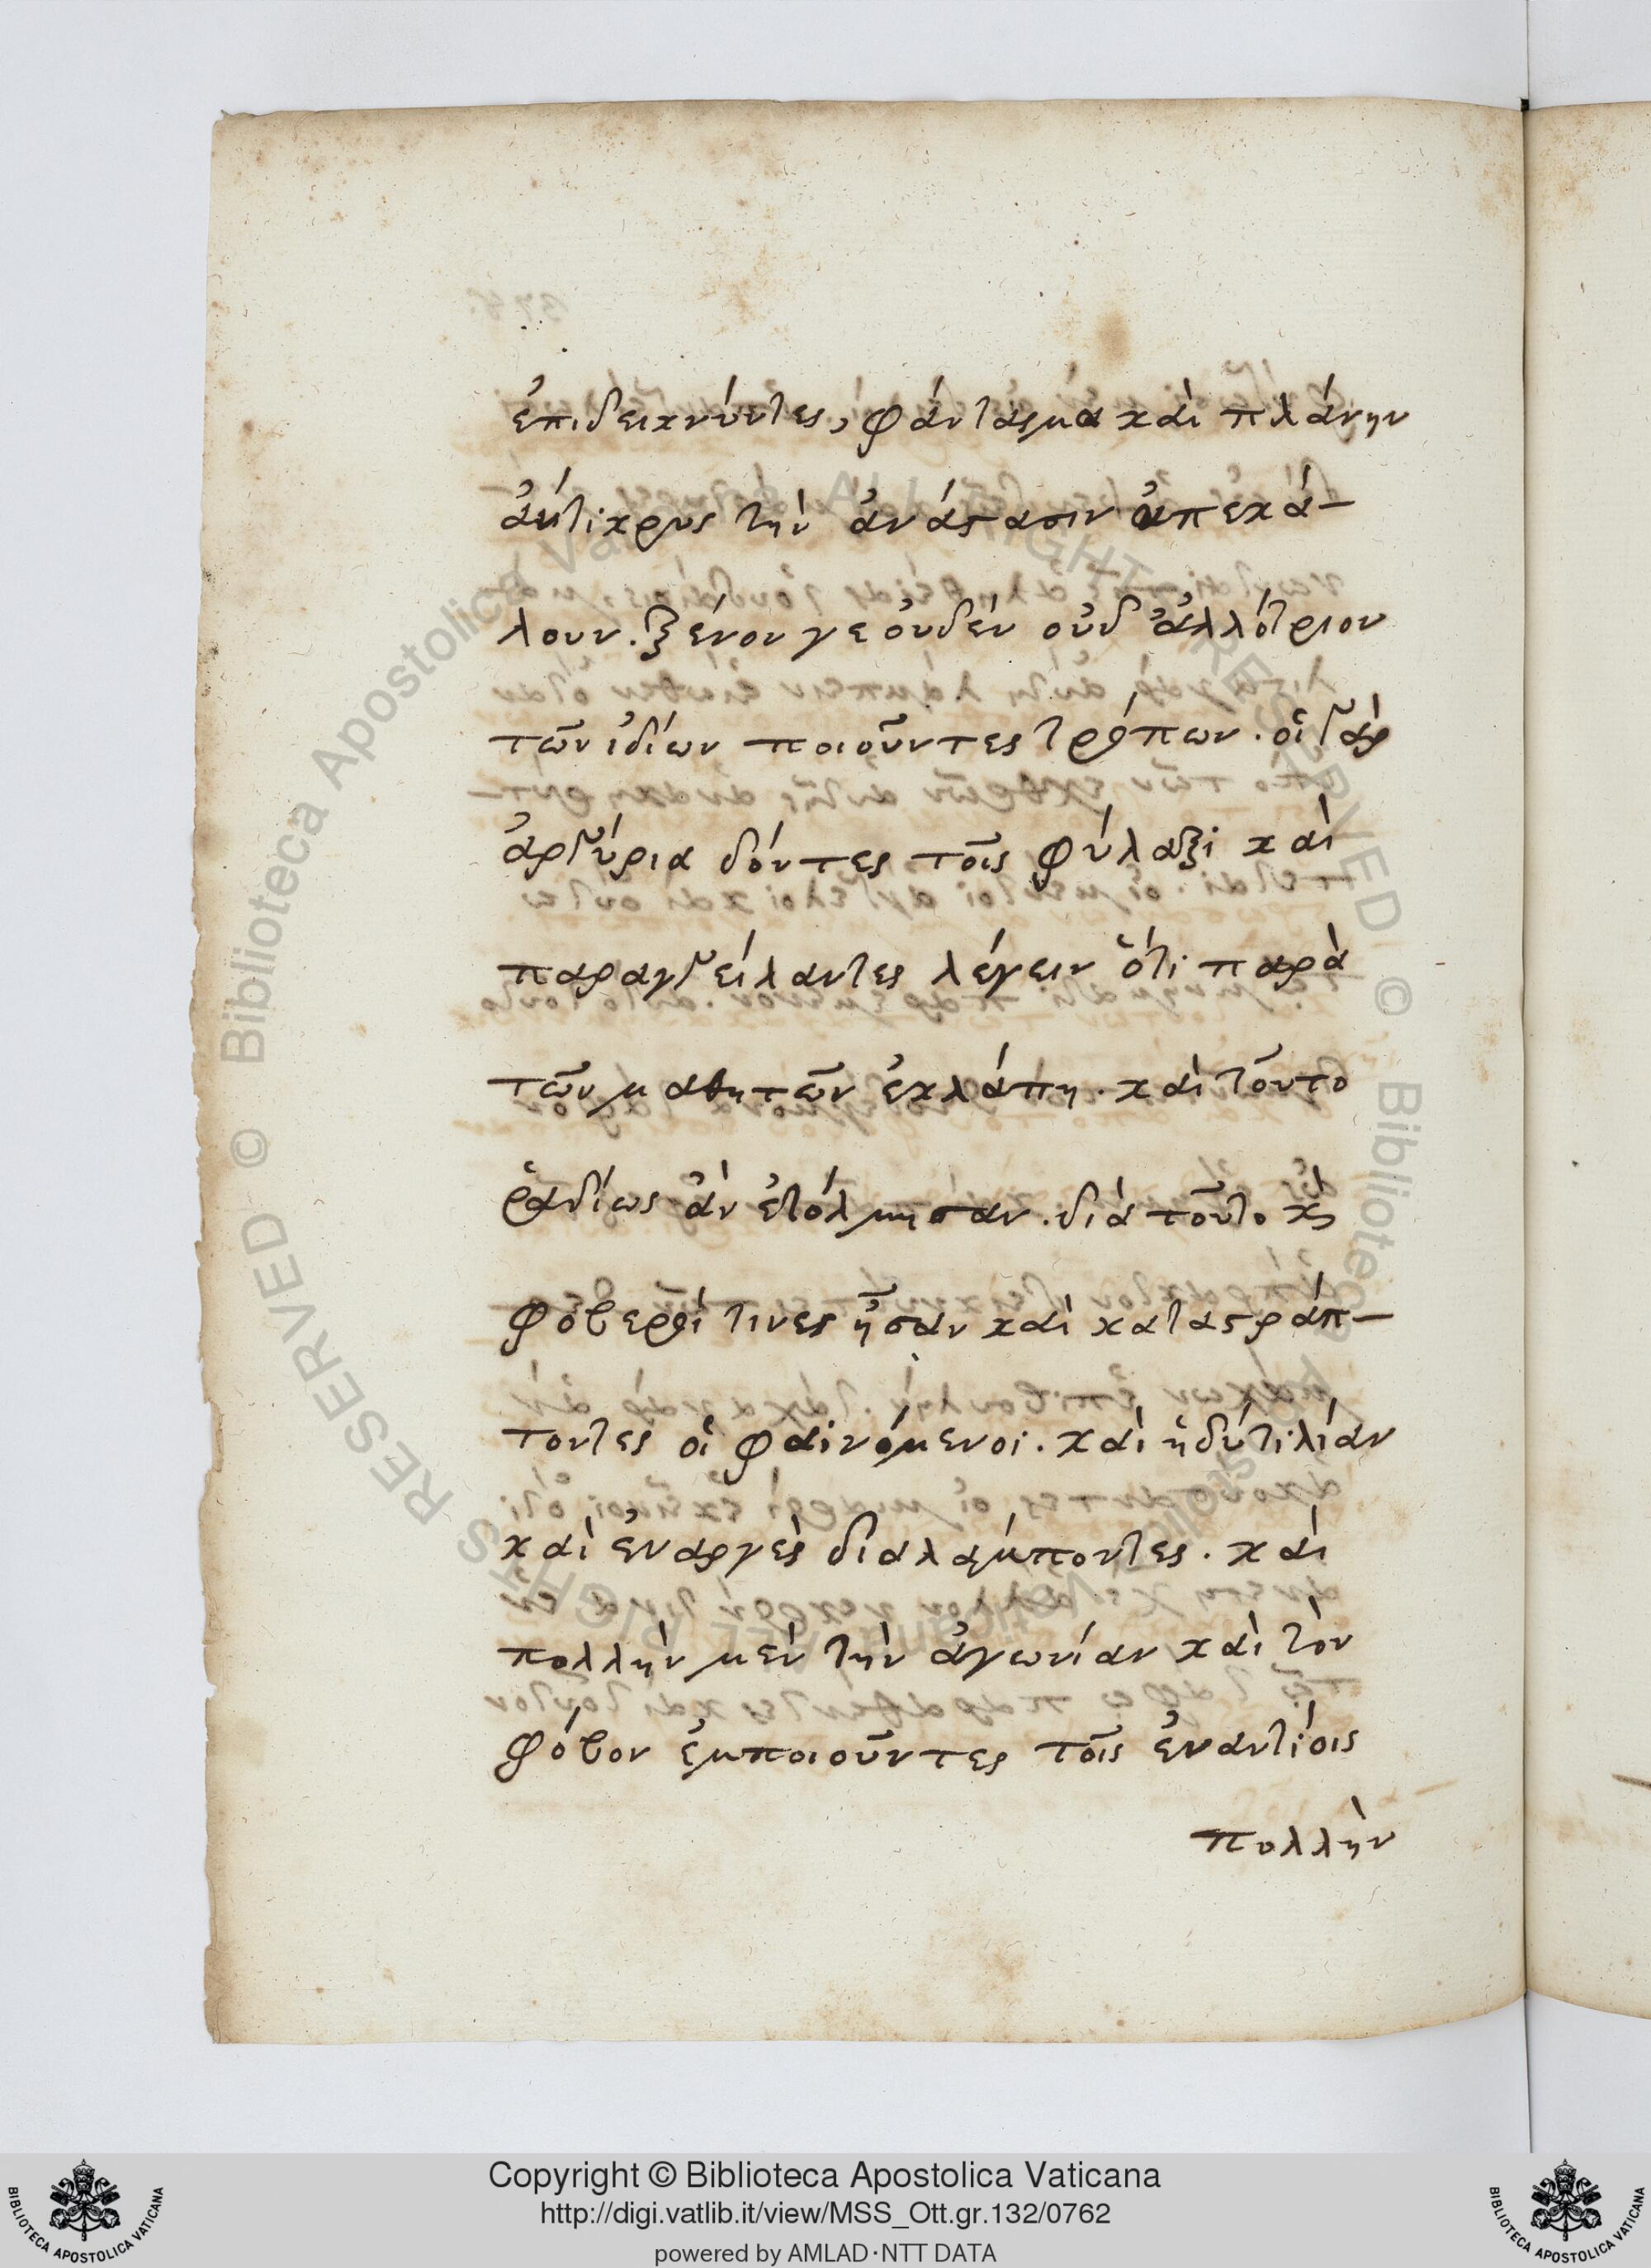 ἐπιδεικνύντες, φάντασμα καὶ πλάνην
ἄντικρυς τὴν ἀνάστασιν ἀπεκά-
λουν. ξένον γε οὐδὲν οὐδ' ἀλλότριον
τῶν ἰδίων ποιοῦντες τρόπων. οἱ γὰρ
ἀργύρια δόντες τοῖς φύλαξι καὶ
παραγγείλαντες λέγειν ὅτι παρὰ
τῶν μαθητῶν ἐκλάπη. καὶ τοῦτο
ῥαδίως ἂν ἐτόλμησαν. διὰ τοῦτο κ̀
φοβεροί τινες ἦσαν καὶ καταστράπ-
τοντες οἱ φαινόμενοι. καὶ ἡδύ τι λίαν
καὶ ἐναργὲς διαλάμποντες. καὶ
πολλὴν μὲν τὴν ἀγωνίαν καὶ τὸν
φόβον ἐμποιοῦντες τοῖς ἐναντίοις
πολλὴν
Copyright © Biblioteca Apostolica Vaticana
http://digi.vatlib.it/view/MSS_Ott.gr.132/0762
powered by AMLAD·NTT DATA